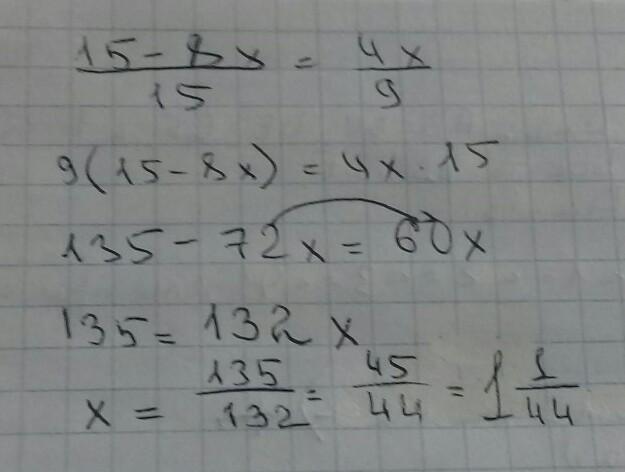 15 - 8x / 15 = 4x / 9
9(15 - 8x) = 4x · 15
135 - 72x = 60x
135 = 132x
x = 135 / 132 = 45 / 44 = 1 1/44